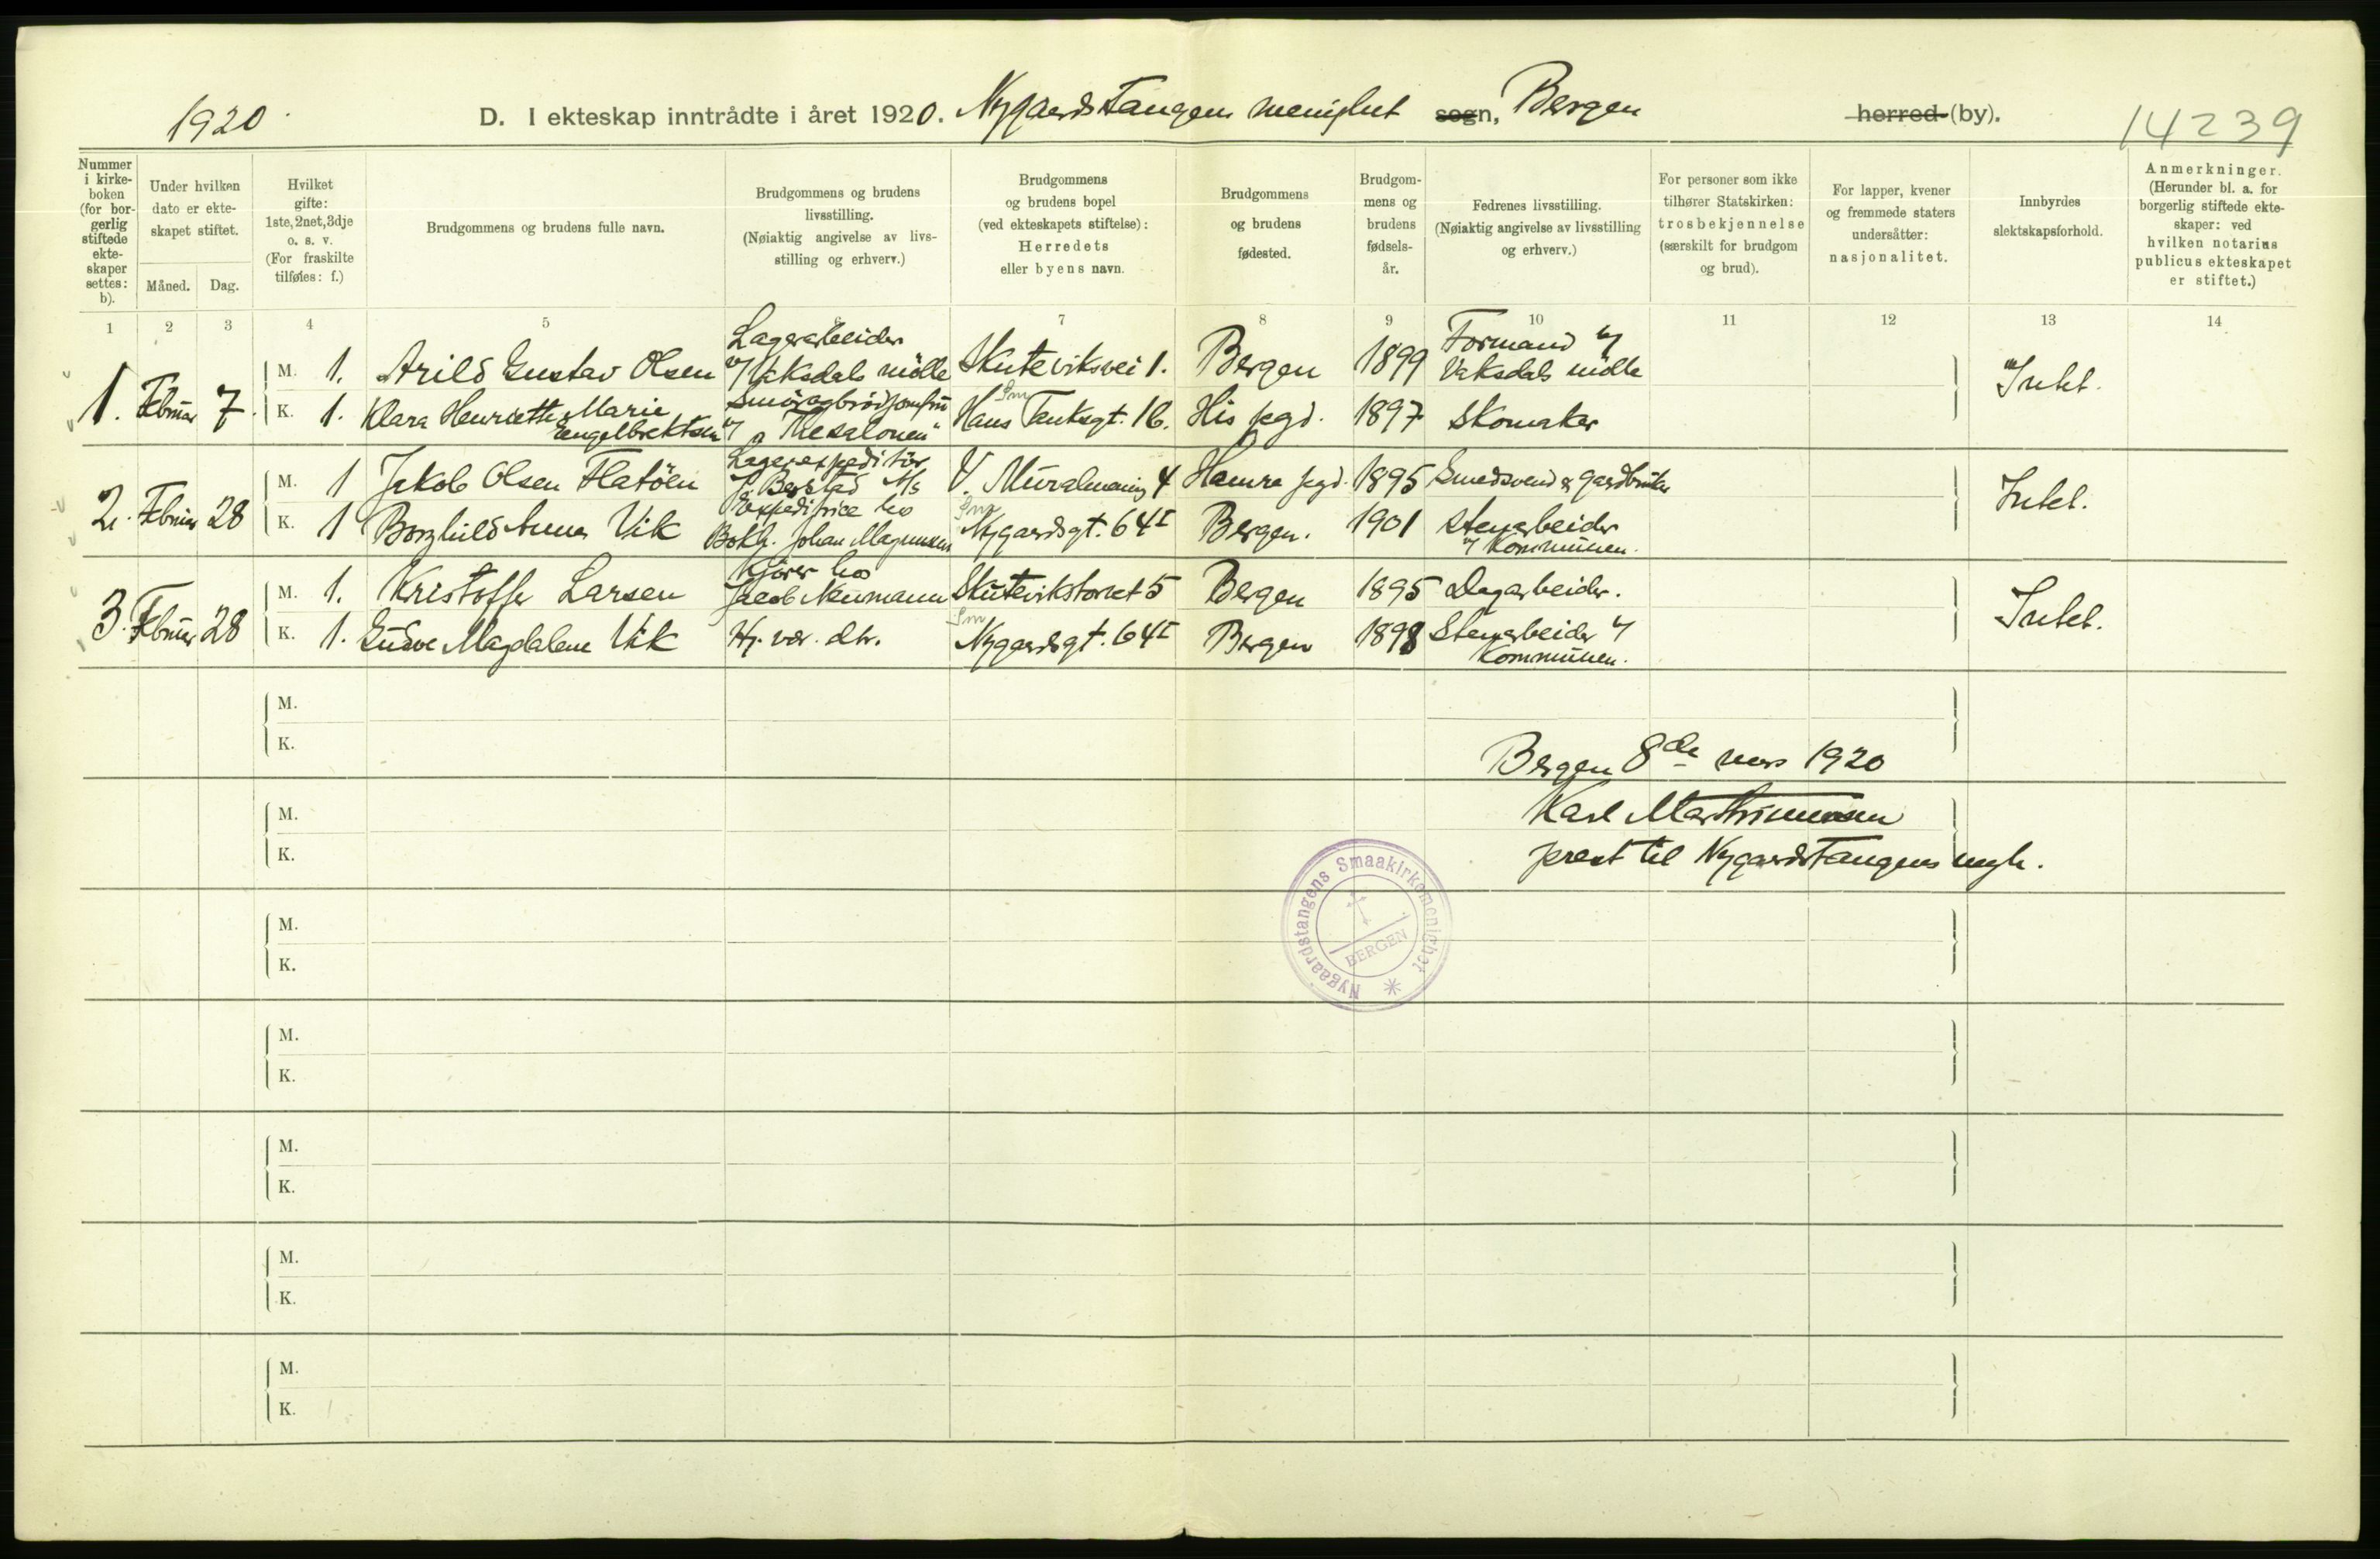 1920
D. I ekteskap inntrådte i året 1920. Nygaardstangens menighet sogn, Bergen herred (by).
14239
Nummer i kirke- boken (for bor- gerlig stiftede ekte- skaper settes: b).
Under hvilken dato er ekte- skapet stiftet.
Måned. Dag.
Hvilket gifte: 1ste, 2net, 3dje o. s. v. (For fraskilte tilføies: f.)
Brudgommens og brudens fulle navn.
Brudgommens og brudens livsstilling. (Nøiaktig angivelse av livs- stilling og erhverv.)
Brudgommens og brudens bopel (ved ekteskapets stiftelse): Herredets eller byens navn.
Brudgommens og brudens fødested.
Brudgom- mens og brudens fødsels- år.
Fedrenes livsstilling. (Nøiaktig angivelse av livsstilling og erhverv.)
For personer som ikke tilhører Statskirken: trosbekjennelse (særskilt for brudgom og brud).
For lapper, kvener og fremmede staters undersåtter: nasjonalitet.
Innbyrdes slektskapsforhold.
Anmerkninger. (Herunder bl. a. for borgerlig stiftede ekte- skaper: ved hvilken notarius publicus ekteskapet er stiftet.)
1 2 3 4 5 6 7 8 9 10 11 12 13 14
1. Februar 7.
M. 1. Arild Gustav Olsen Lagerarbeider v/ Vaksdals mölle Skuteviksvei 1. Bergen 1899 Formand v/ Vaksdals mölle Intet.
K. 1. Klara Henriette Marie Engelbrektsen Smörogbrödjomfru v/ "Thesalonen" Hans Tanksgt. 16. His pgd. 1897 Skomaker
2. Februar 28
M. 1 Jakob Olsen Flatöen Lagerexpeditör Bergstad A/s V. Muralmening 4 Hamre pgd. 1895 Smedsvend & gardbruker Intet.
K. 1 Borghild Anna Vik Expeditrice hos Bokh. Johan Magnussen Nygaardsgt. 64 I Bergen. 1901 Stenarbeider v/ Kommunen.
3. Februar 28
M. 1. Kristoffer Larsen Kjörer hos Jacob Neumann Skutevikstorvet 5 Bergen 1895 Dagarbeider. Intet.
K. 1. Gudve Magdalene Vik Hj. vær. dtr. Nygaardsgt. 64 I Bergen 1898 Stenarbeider v/ Kommunen.
M.
K.
Bergen 8de mars 1920
M.
Karl Marthinussen
K.
prest til Nygaardstangens mgh.
Nygaardstangens Smaakirkemenighet
BERGEN
M.
K.
M.
K.
M.
K.
M.
K.
M.
K.